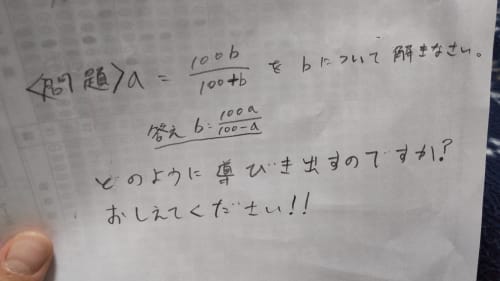 <問題>a = 100b/100+b を bについて解きなさい。
答え b = 100a/100-a
どのように導びき出すのですか?
おしえてください!!